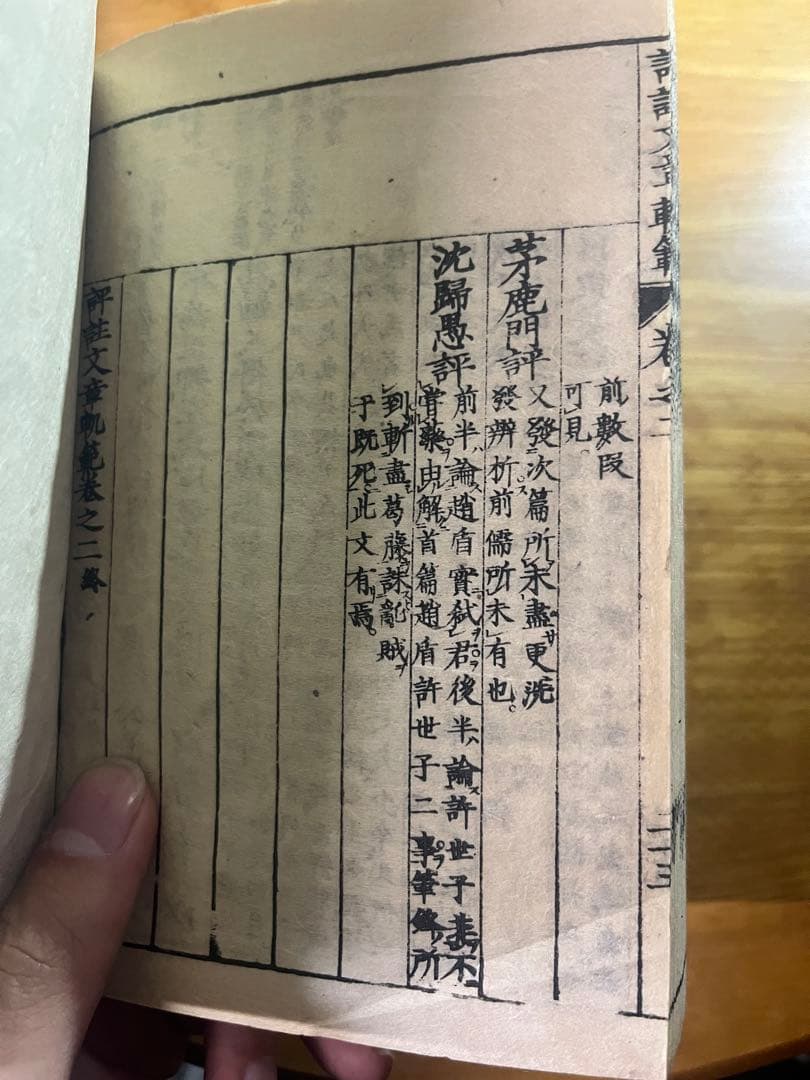 評註文章軌範 卷之二 二十三
前數段
可見。
茅鹿門評 又發次篇所未盡更洗
發辨析前儒所未有也。
沈歸愚評 前半論趙盾實弑君後半論許世子非不
嘗藥解首篇趙盾許世子二事筆鋒所
到斬盡葛藤誅亂賊
于既死此文有焉。
評註文章軌範卷之二終